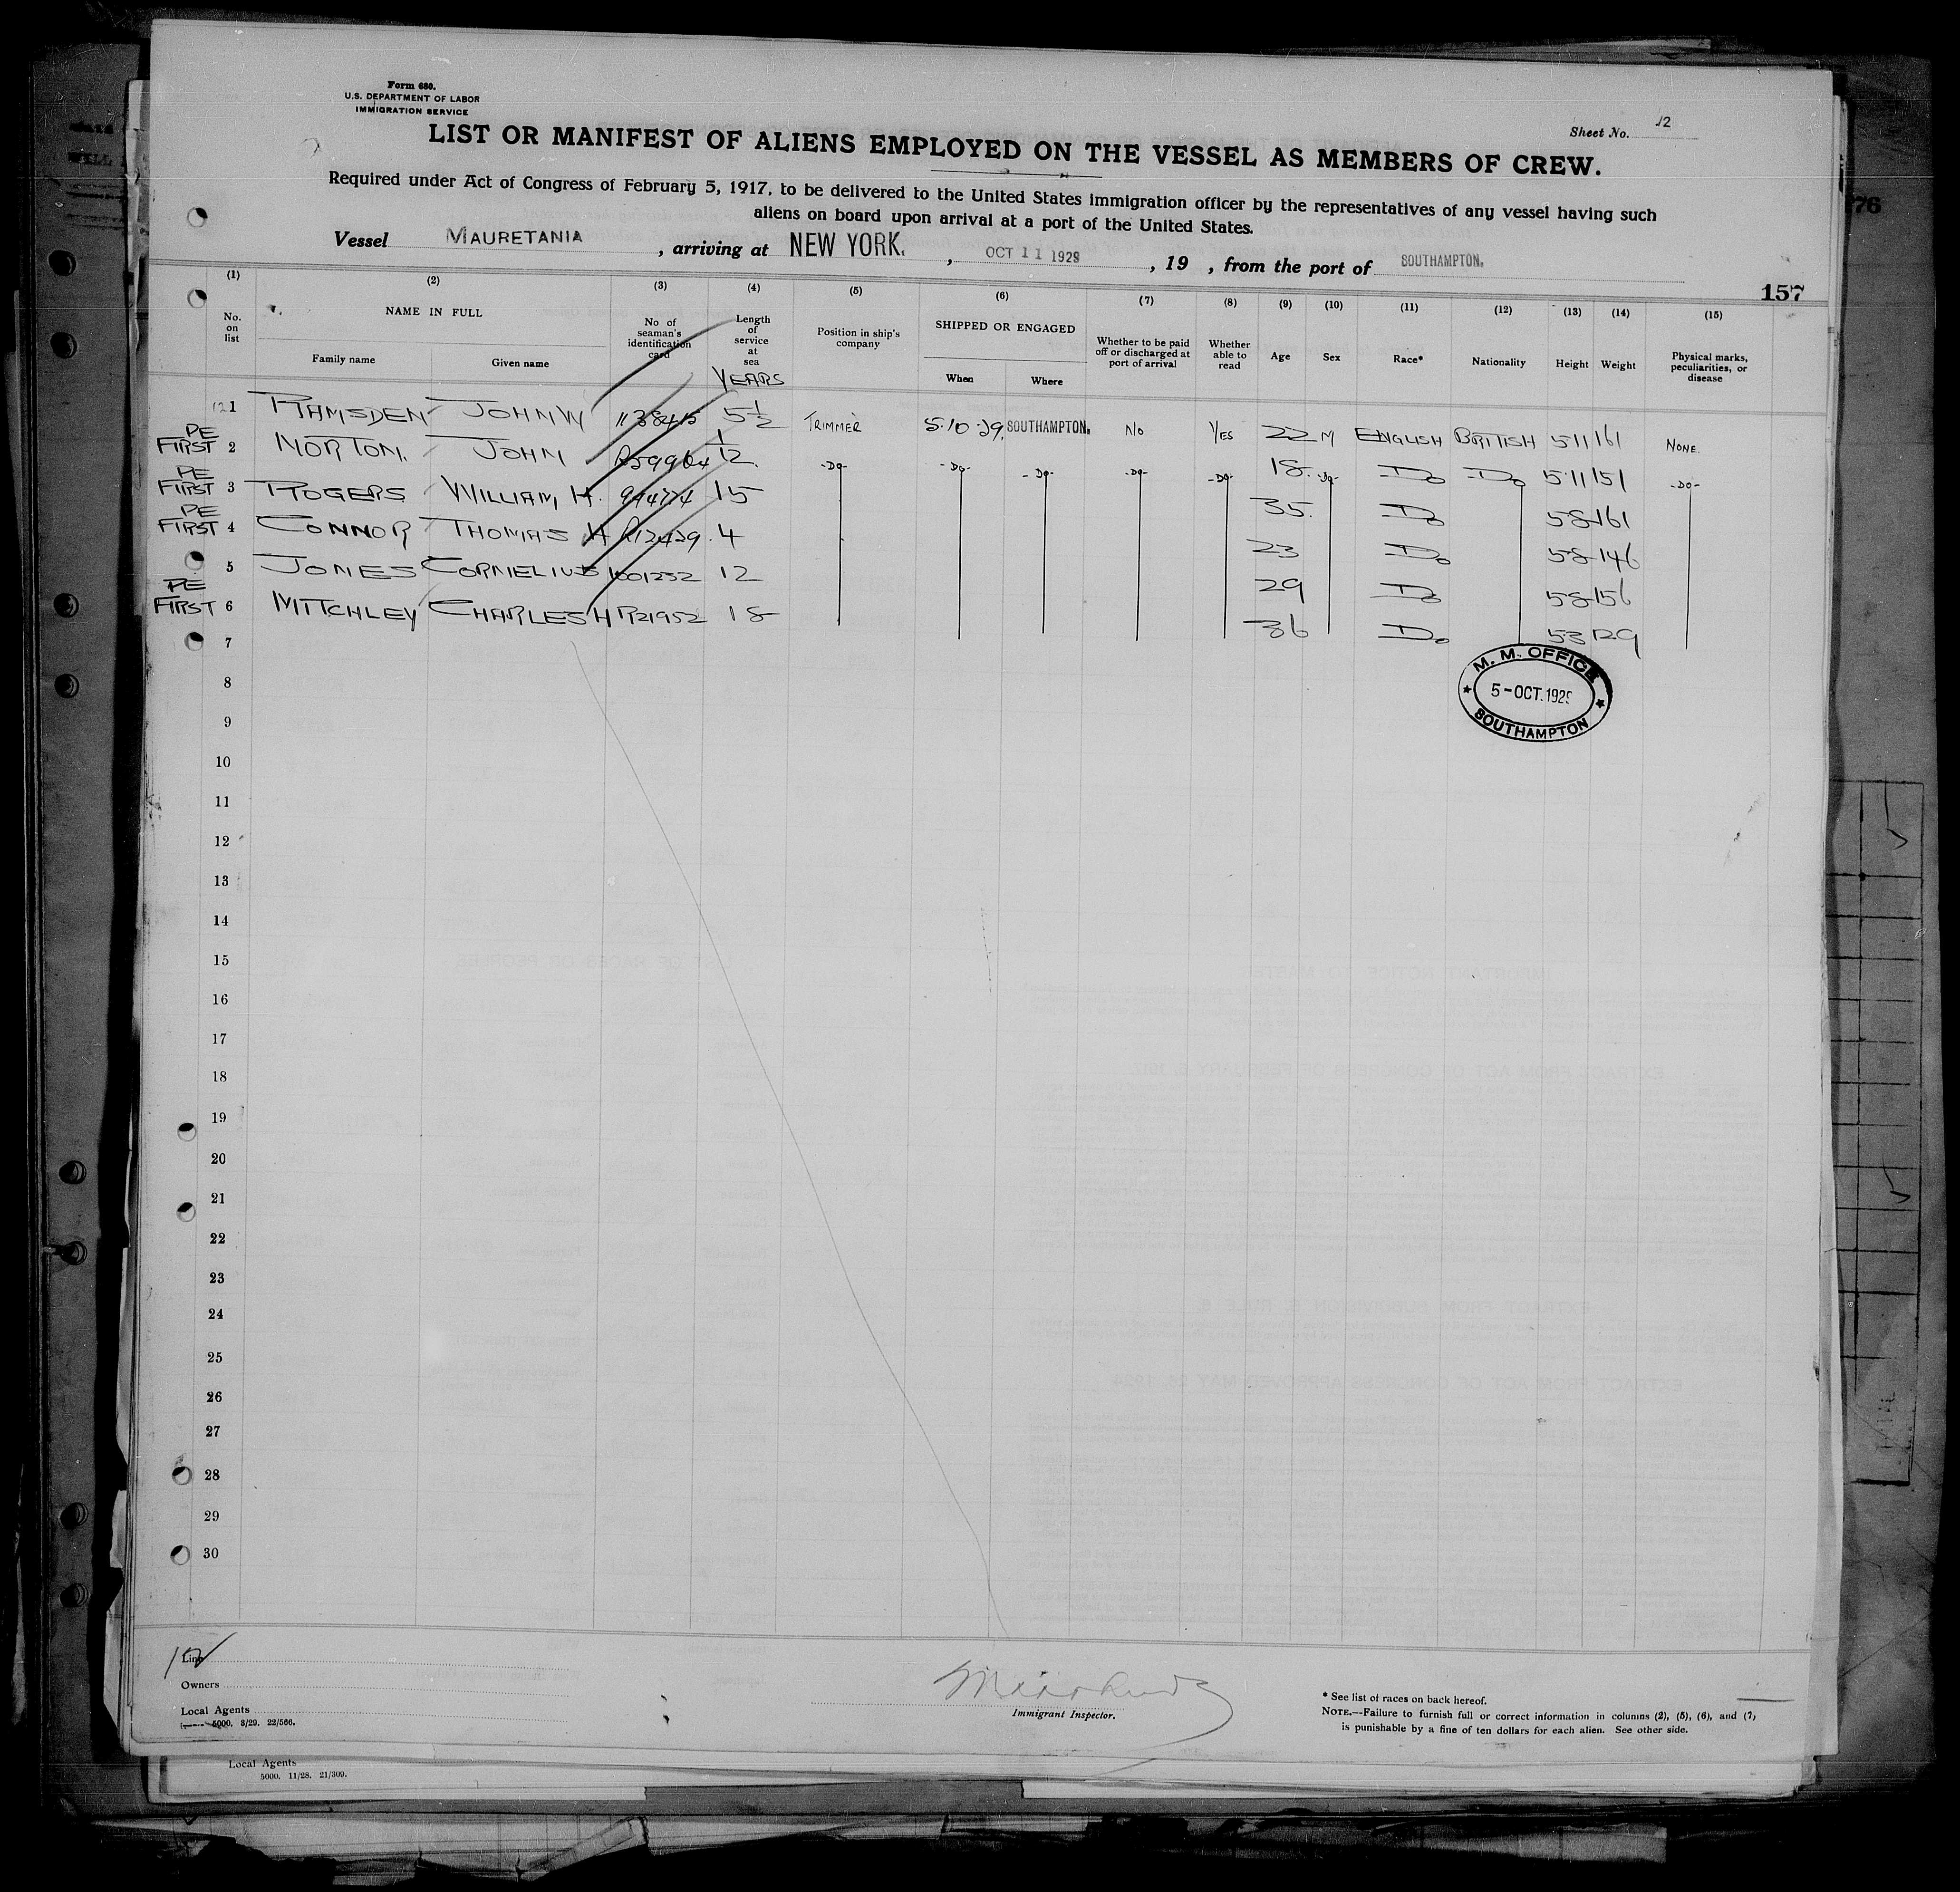 Form 680.
U.S. DEPARTMENT OF LABOR
IMMIGRATION SERVICE
Sheet No. 12
LIST OR MANIFEST OF ALIENS EMPLOYED ON THE VESSEL AS MEMBERS OF CREW.
Required under Act of Congress of February 5, 1917, to be delivered to the United States immigration officer by the representatives of any vessel having such
aliens on board upon arrival at a port of the United States.
Vessel MAURETANIA, arriving at NEW YORK, OCT 11 1929, 19 , from the port of SOUTHAMPTON.
157
76
(1) (2) (3) (4) (5) (6) (7) (8) (9) (10) (11) (12) (13) (14) (15)
No. on list
NAME IN FULL
Family name Given name
No of seaman's identification card
Length of service at sea
YEARS
Position in ship's company
SHIPPED OR ENGAGED
When Where
Whether to be paid off or discharged at port of arrival
Whether able to read
Age Sex Race* Nationality Height Weight
Physical marks, peculiarities, or disease
1 RAMSDEN JOHN W 1138415 5½ TRIMMER 5.10.29. SOUTHAMPTON. NO YES 22 M ENGLISH BRITISH 5-11 161 NONE.
PE FIRST 2 NORTON. JOHN 1/12. -DO- -DO- -DO- -DO- -DO- 18. -DO- DO DO 5-11 151 -DO-
PE FIRST 3 ROGERS WILLIAM H. 15 35. DO 5-8 161
PE FIRST 4 CONNOR THOMAS H R12429. 4 23 DO 5-8 146
5 JONES CORNELIUS 1001252 12 29 DO 5-8 156
PE FIRST 6 MITCHLEY CHARLES H R21952 18 36 DO 5-3 129
7
M. M. OFFICE
5-OCT.1929
SOUTHAMPTON
8
9
10
11
12
13
14
15
16
17
18
19
20
21
22
23
24
25
26
27
28
29
30
Line
Owners
Local Agents
5000. 3/29. 22/566.
Immigrant Inspector.
* See list of races on back hereof.
NOTE.—Failure to furnish full or correct information in columns (2), (5), (6), and (7)
is punishable by a fine of ten dollars for each alien. See other side.
Local Agents
5000. 11/28. 21/309.